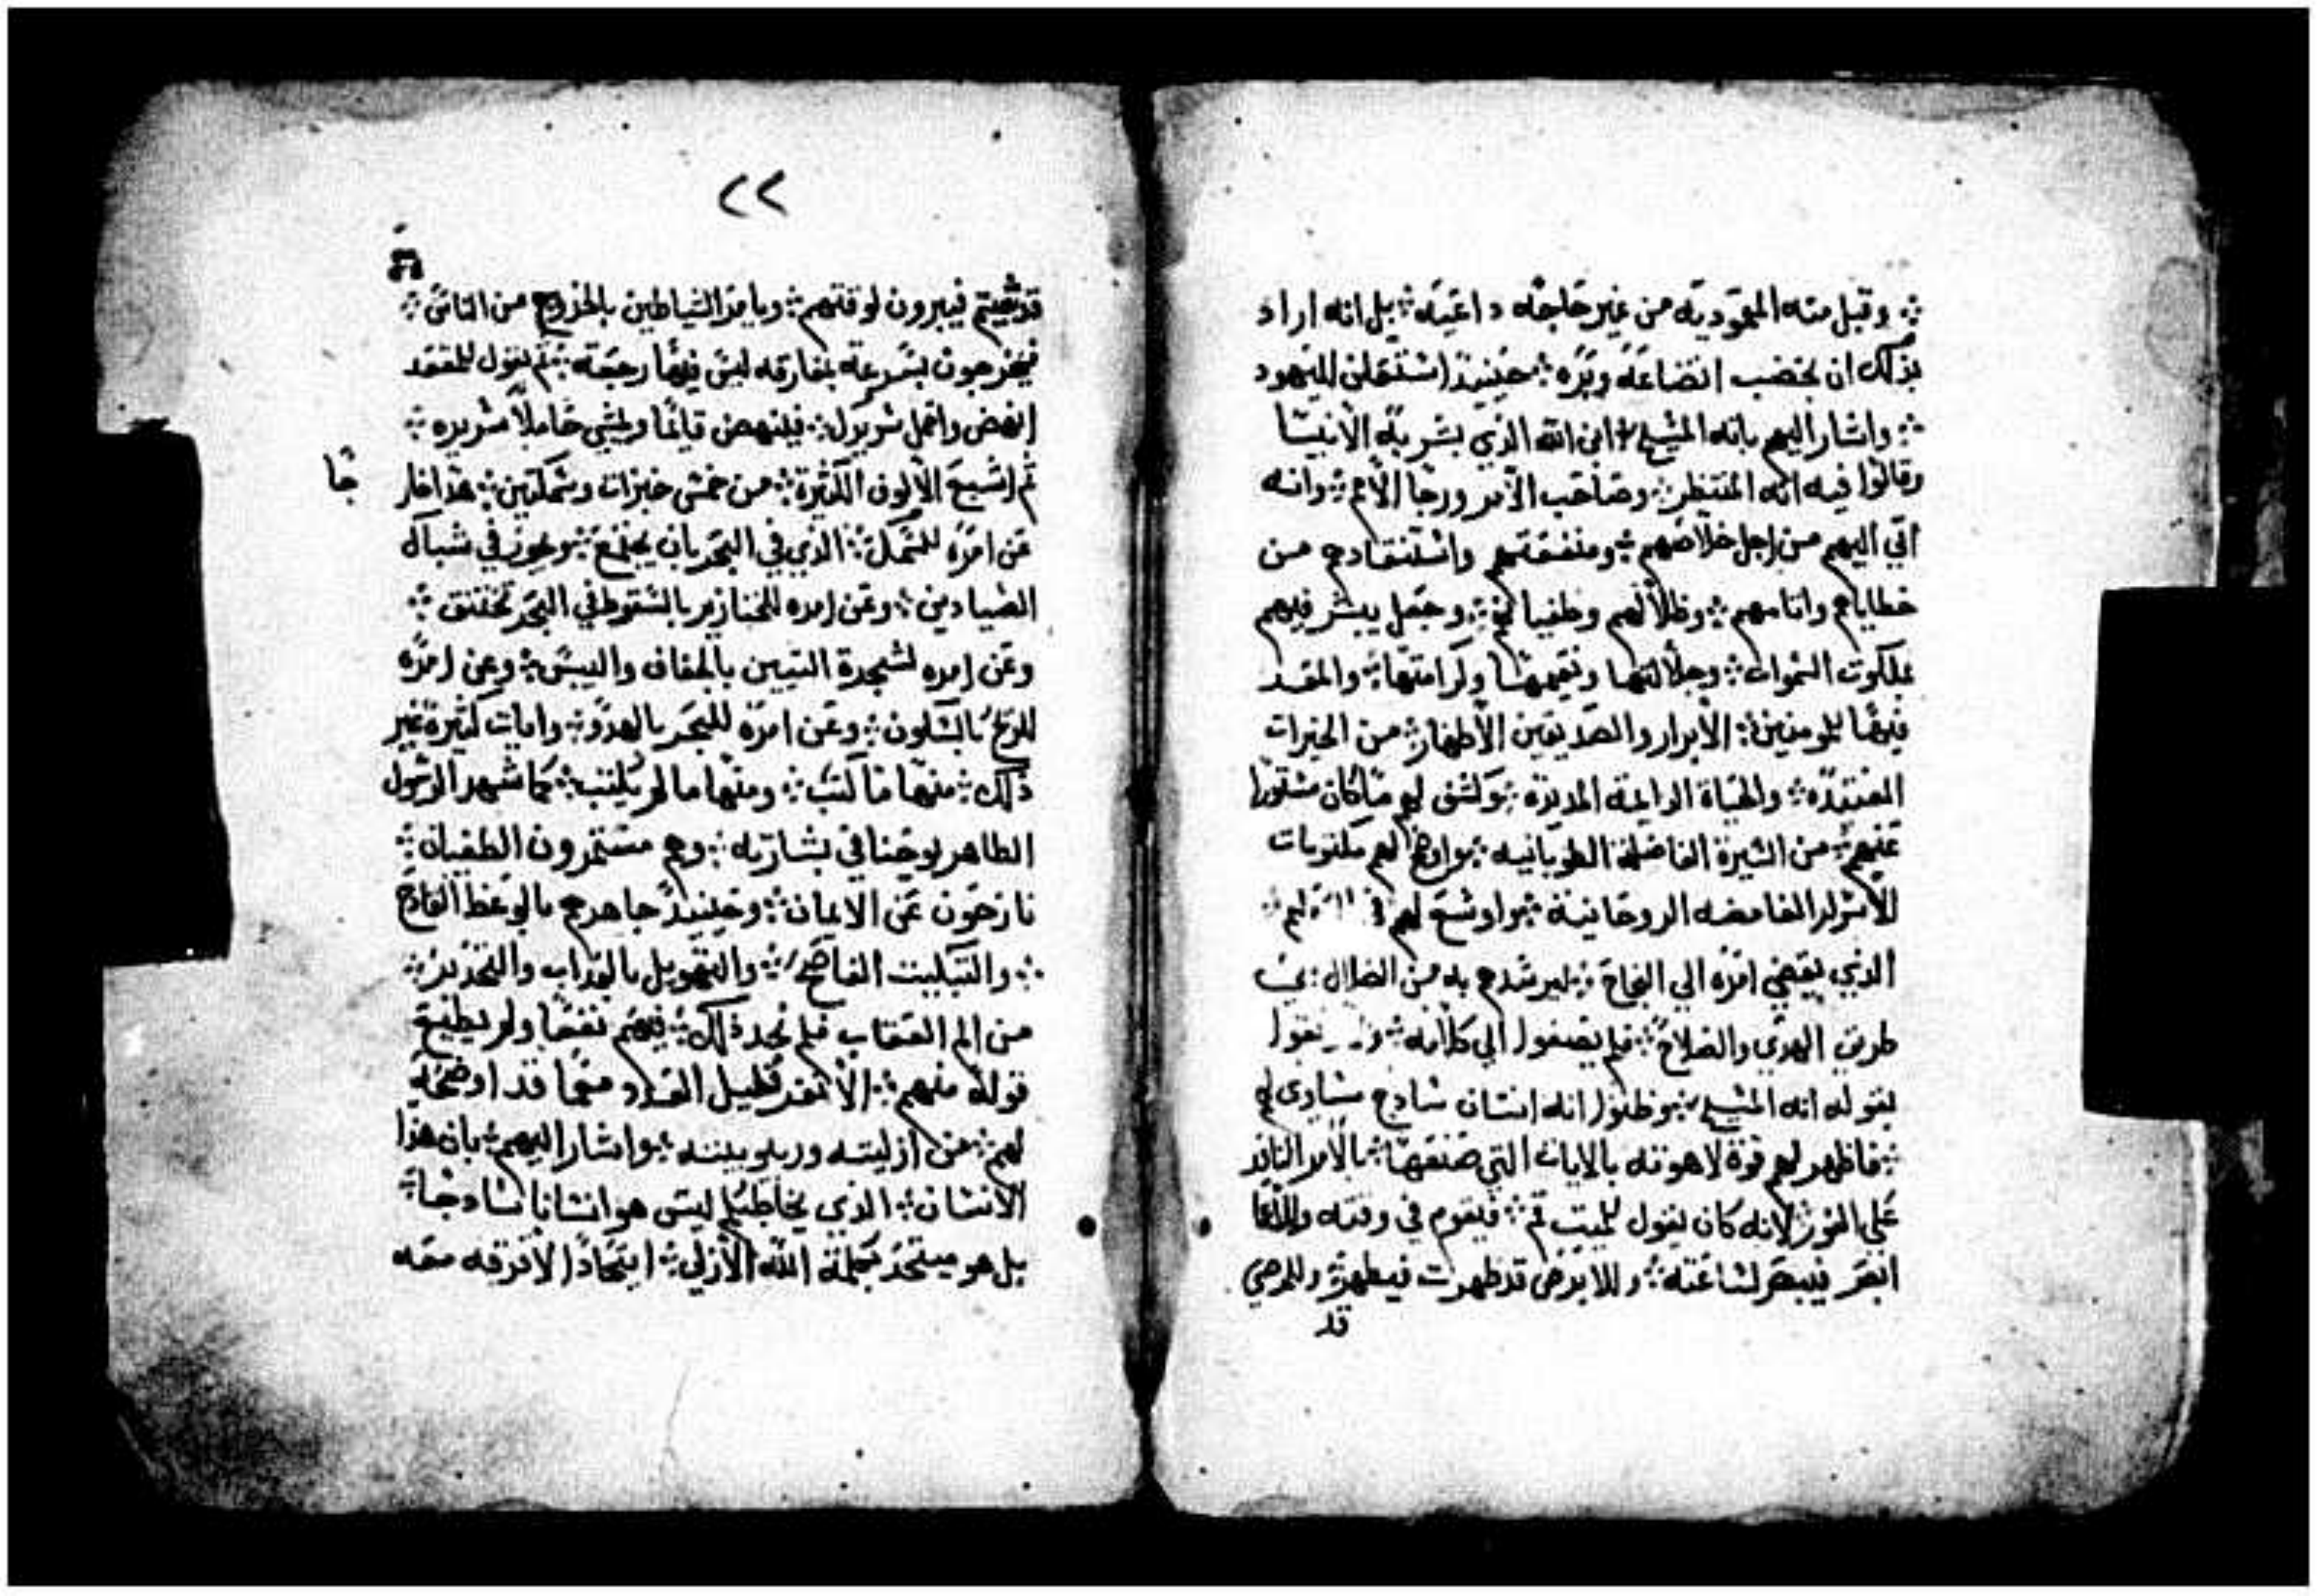 ؞ وقبل منه المعموديه من غير حاجه داعيه ؞ بل انه اراد
بذلك ان يخضب اتضاعه وبره ؞ حينيذ استعلن لليهود
؞ واشار اليهم بانه المسيح ؞ ابن الله الذي بشر به الانبيا
وقالوا فيه انه المنتظر ؞ وصاحب الامر ورجا الامم ؞ وانه
اتي اليهم من اجل خلاصهم ؞ ومنفعتهم واستنقادهم من
خطاياهم واثامهم ؞ وظلالهم وطغيانهم ؞ وجعل يبشر فيهم
بملكوت السموات ؞ وجلالتها ونعيمها وكرامتها ؞ والمعد
فيها للمومنين ؞ الابرار والصديقين الاطهار ؞ من الخيرات
المعتده ؞ والحياة الدايمة المديدة ؞ وكشف لهم ما كان مستورا
عنهم ؞ من السيرة الفاضلة الطوبانيه ؞ واوضح لهم مكتوبات
الاسرار الغامضه الروحانية ؞ واوسع لهم في
الذي يفضي امره الي النجاح ؞ ليرشدهم به من الضلال ؞ الي
طريق الهدي والصلاح ؞ فلم يصغوا الي كلامه ؞
بقوله انه المسيح ؞ وظنوا انه انسان سادج مساوي لهم
؞ فاظهر لهم قوة لاهوته بالايات التي صنعها ؞ بالامر النافد
علي الفور لانه كان يقول للميت قم ؞ فيقوم في وقته وللاعما
ابصر فيبصر لساعته ؞ وللابرص قد طهرت فيطهر ؞ وللمرضي
قد
٢٢
قد شفيتم فيبرون لوقتهم ؞ ويامر الشياطين بالخروج من الناس ؞
فيخرجون بسرعة بمفارقه ليس فيها رجعة ؞ ثم يقول للمقعد
انهض واحمل سريرك ؞ فينهض قايما ويمشي حاملا سريره ؞
ثم اشبع الالوف الكثيرة ؞ من خمس خبزات وسمكتين ؞ هذا خار
جا
عن امره للسمك ؞ الذي في البحر بان يجتمع ؞ في شباك
الصيادين ؞ وعن امره للخنازير بالسقوط في البحر تختنق ؞
وعن امره لشجرة التين بالجفاف واليبس ؞ وعن امره
للريح بالسكون ؞ وعن امره للبحر بالهدو ؞ وايات كثيرة غير
ذلك ؞ منها ما كتب ؞ ومنها ما لم يكتب ؞ كما شهد الرسول
الطاهر يوحنا في بشارته ؞ وهم مستمرون الطغيان ؞
نازحون عن الايمان ؞ وحينيذ جاهرهم بالوعظ القادح
؞ والتبكيت الفاضح ؞ والتهويل بالعذاب والتحذير ؞
من الم العقاب فلم نجد ذلك ؞ فيهم نفعا ولم يطيع
قوله منهم ؞ الا نفر قليل العدد معما قد اوضحه
لهم ؞ من ازليته وربوبيته ؞ واشار اليهم ؞ بان هذا
الانسان ؞ الذي يخاطبكم ليس هو انسانا سادجا ؞
بل هو متحد بكلمة الله الازلي ؞ اتحادا لا فرقه معه